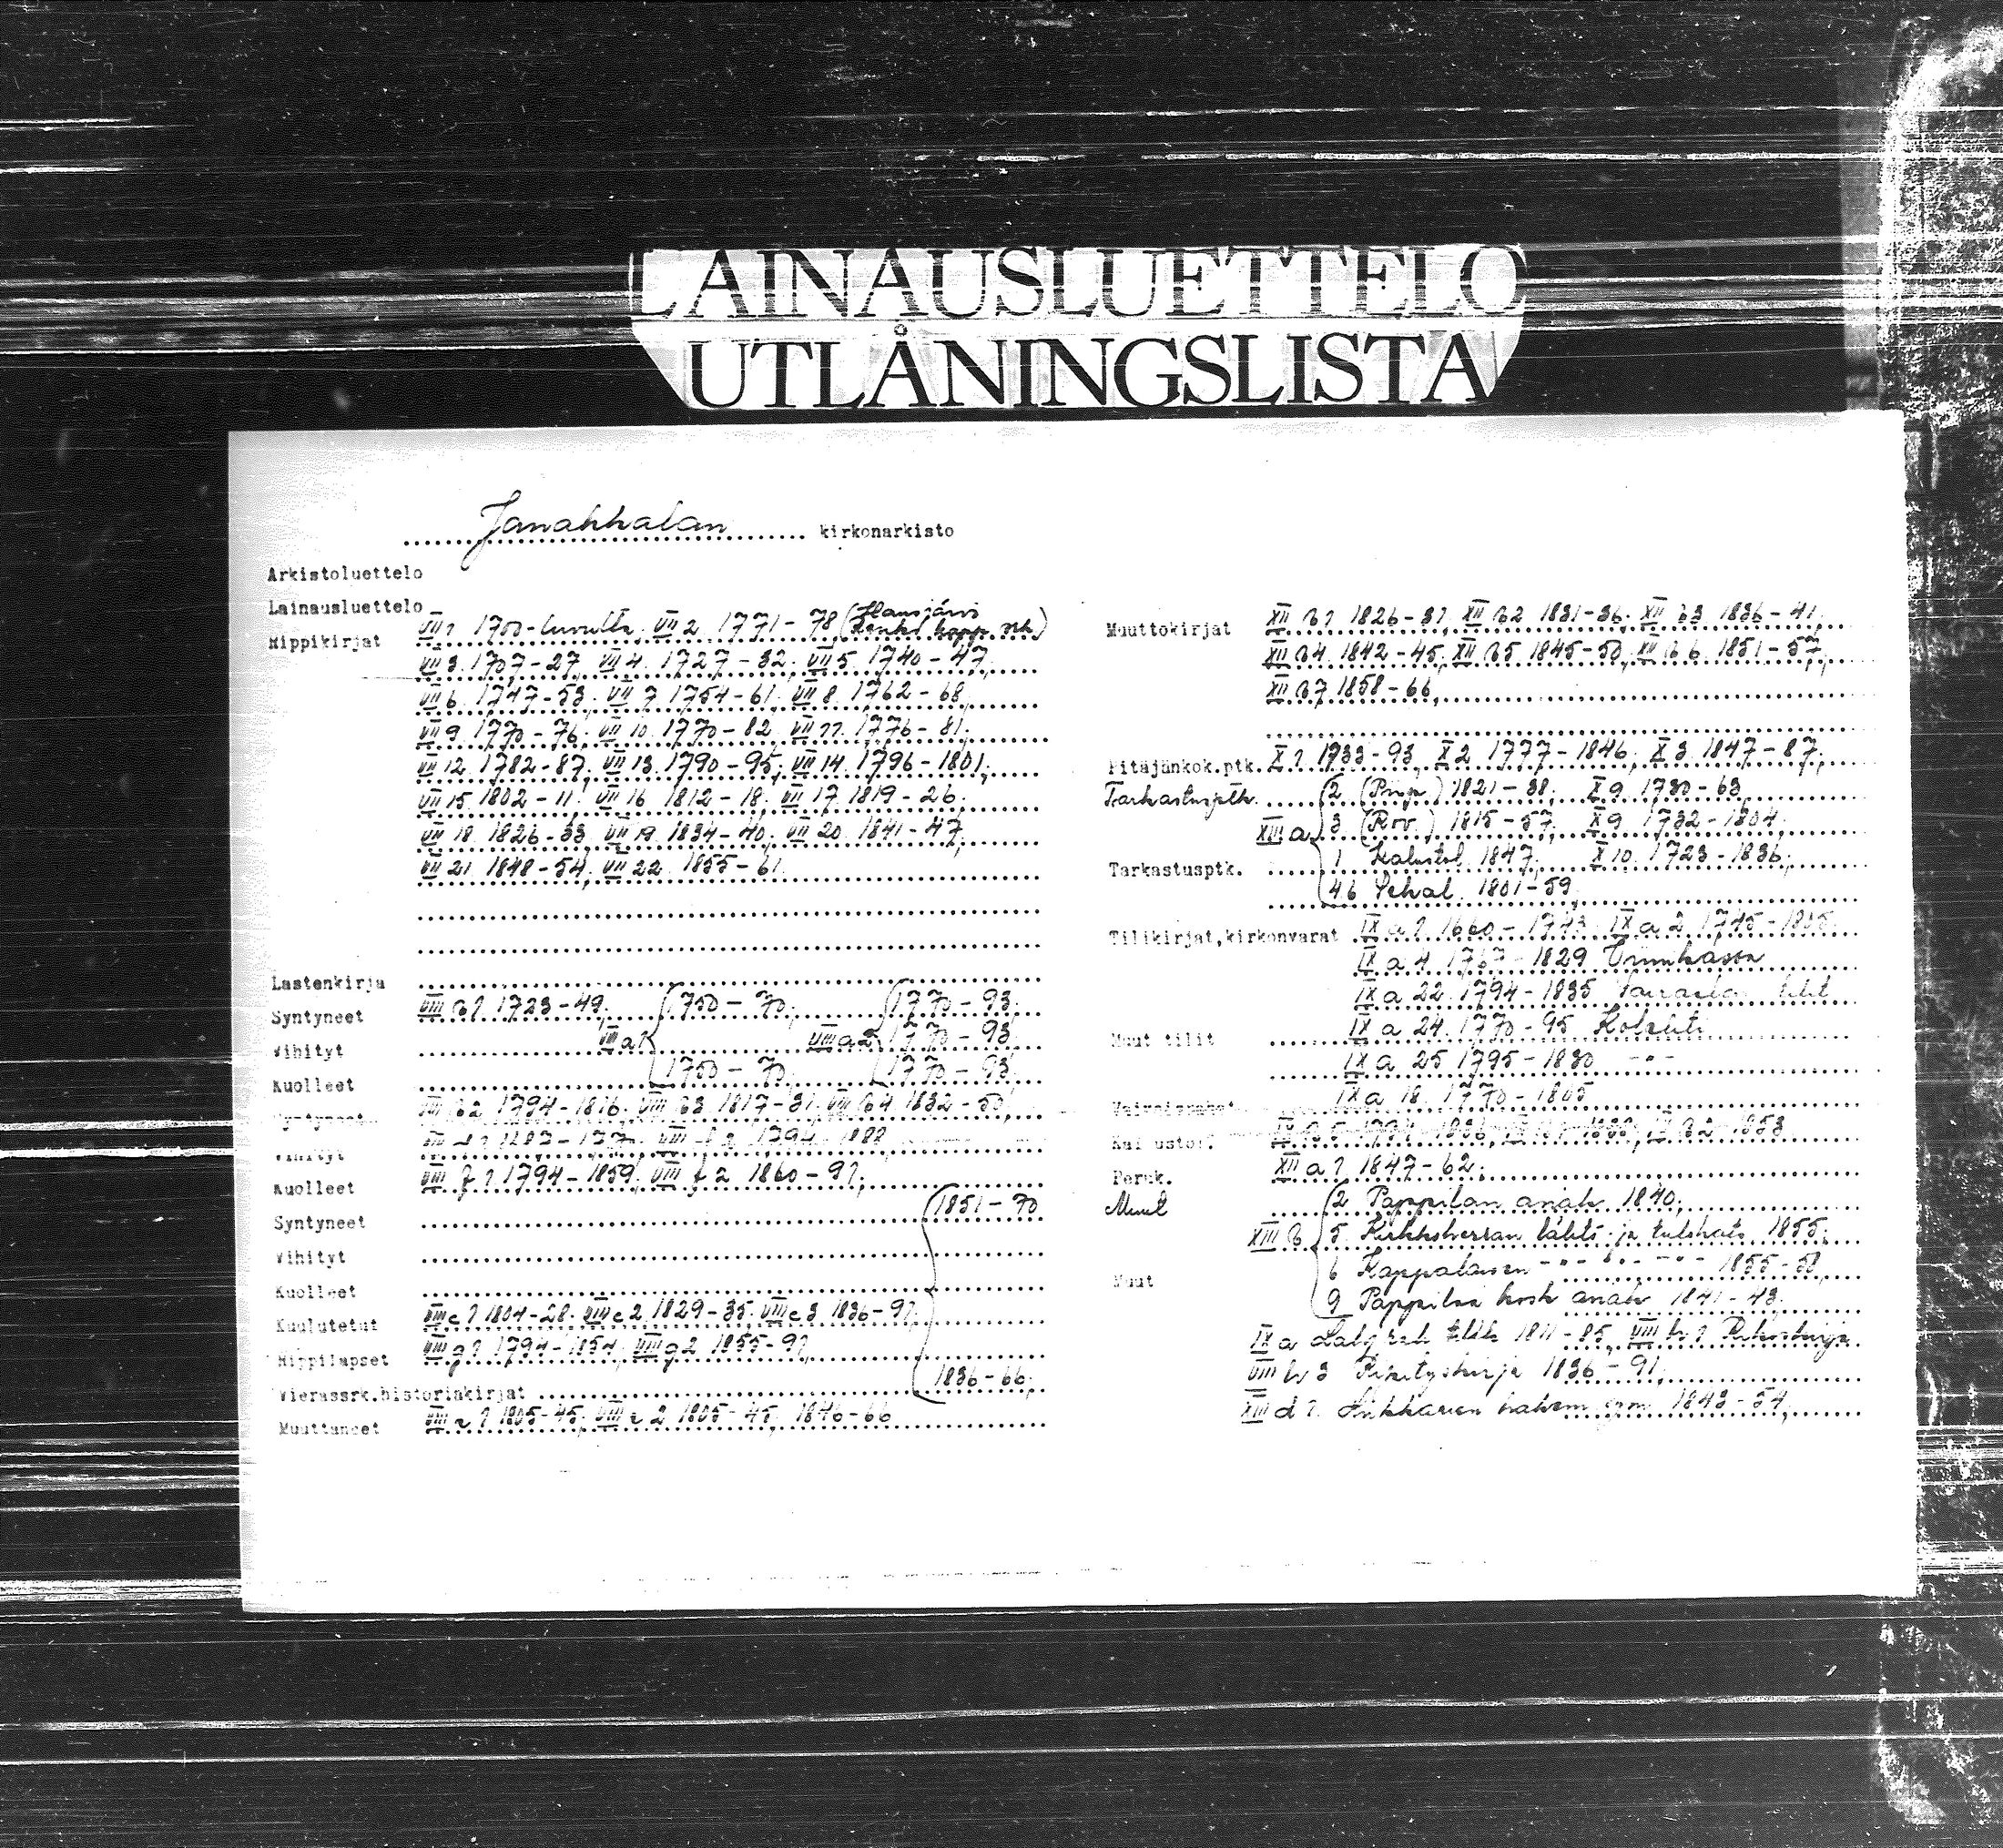 LAINAUSLUETTELO
UTLÅNINGSLISTA
Janakkalan kirkonarkisto
Arkistoluettelo
Lainausluettelo
Rippikirjat VII 1 1750-luvulta; VII 2 1771-78 (Hausjärvi
VII 3 1707-27, VII 4 1727-32; VII 5 1740-47;
VII 6 1747-53; VII 7 1754-61; VII 8 1762-68,
VII 9 1770-76; VII 10 1770-82; VII 11 1776-81;
VII 12 1782-87; VII 13 1790-95; VII 14 1796-1801;
VII 15 1802-11; VII 16 1812-18; VII 17 1819-26;
VII 18 1826-33; VII 19 1834-40; VII 20 1841-47;
VII 21 1848-54; VII 22 1855-61
Lastenkirja
Syntyneet VIII B1 1723-49; 1750-70; 1770-93;
Vihityt VIII a1 VIII a2 1770-93;
Kuolleet 1750-70; 1770-93;
Syntyneet VIII B2 1794-1816; VIII B3 1817-31; VIII B4 1832-50;
Vihityt
Kuolleet VIII f1 1794-1859; VIII f2 1860-91;
Syntyneet 1851-70
Vihityt
Kuolleet
Kuulutetut VIII c1 1804-28; VIII c2 1829-35; VIII c3 1836-91;
Rippilapset VIII g1 1794-1854; VIII g2 1855-91,
Vierassrk.historiakirjat 1836-66;
Muuttaneet 1805-45; 1805-45; 1846-66
Muuttokirjat XII B1 1826-31, XII B2 1831-36; XII B3 1836-41;
XII B4 1842-45; XII B5 1845-50; XII B6 1851-57;
XII B7 1858-66,
Pitäjänkok.ptk. X 1 1733-93, X 2 1777-1846; X 3 1847-87;
Tarkastusptk. 2 1821-38; X 9 1730-63
XIII a 3 (Rov.) 1815-57; X 9 1732-1804;
Tarkastusptk. 1 Kalustol 1847; X 10 1723-1836;
46 Sekal. 1801-59;
Tilikirjat,kirkonvarat IX a 1 1660-1743; IX a 2 1745-1835;
IX a 4 1767-1829
IX a 22 1794-1835 tilit
IX a 24 1770-95 Kolehti
Muut tilit
IX a 25 1795-1830 -"-
IX a 18 1770-1805
Kalustol.
Peruk. XII a 1 1847-62;
Muut 2 Pappilan arviok 1840;
XIII B 5 1855;
6 Kappalaisen -"- -"- -"- 1855-58,
Muut
9 Pappilan 1841-43;
IX a 1811-85,
VIII h 3 Rikoskirja 1836-91;
XIII d 1 1843-54;